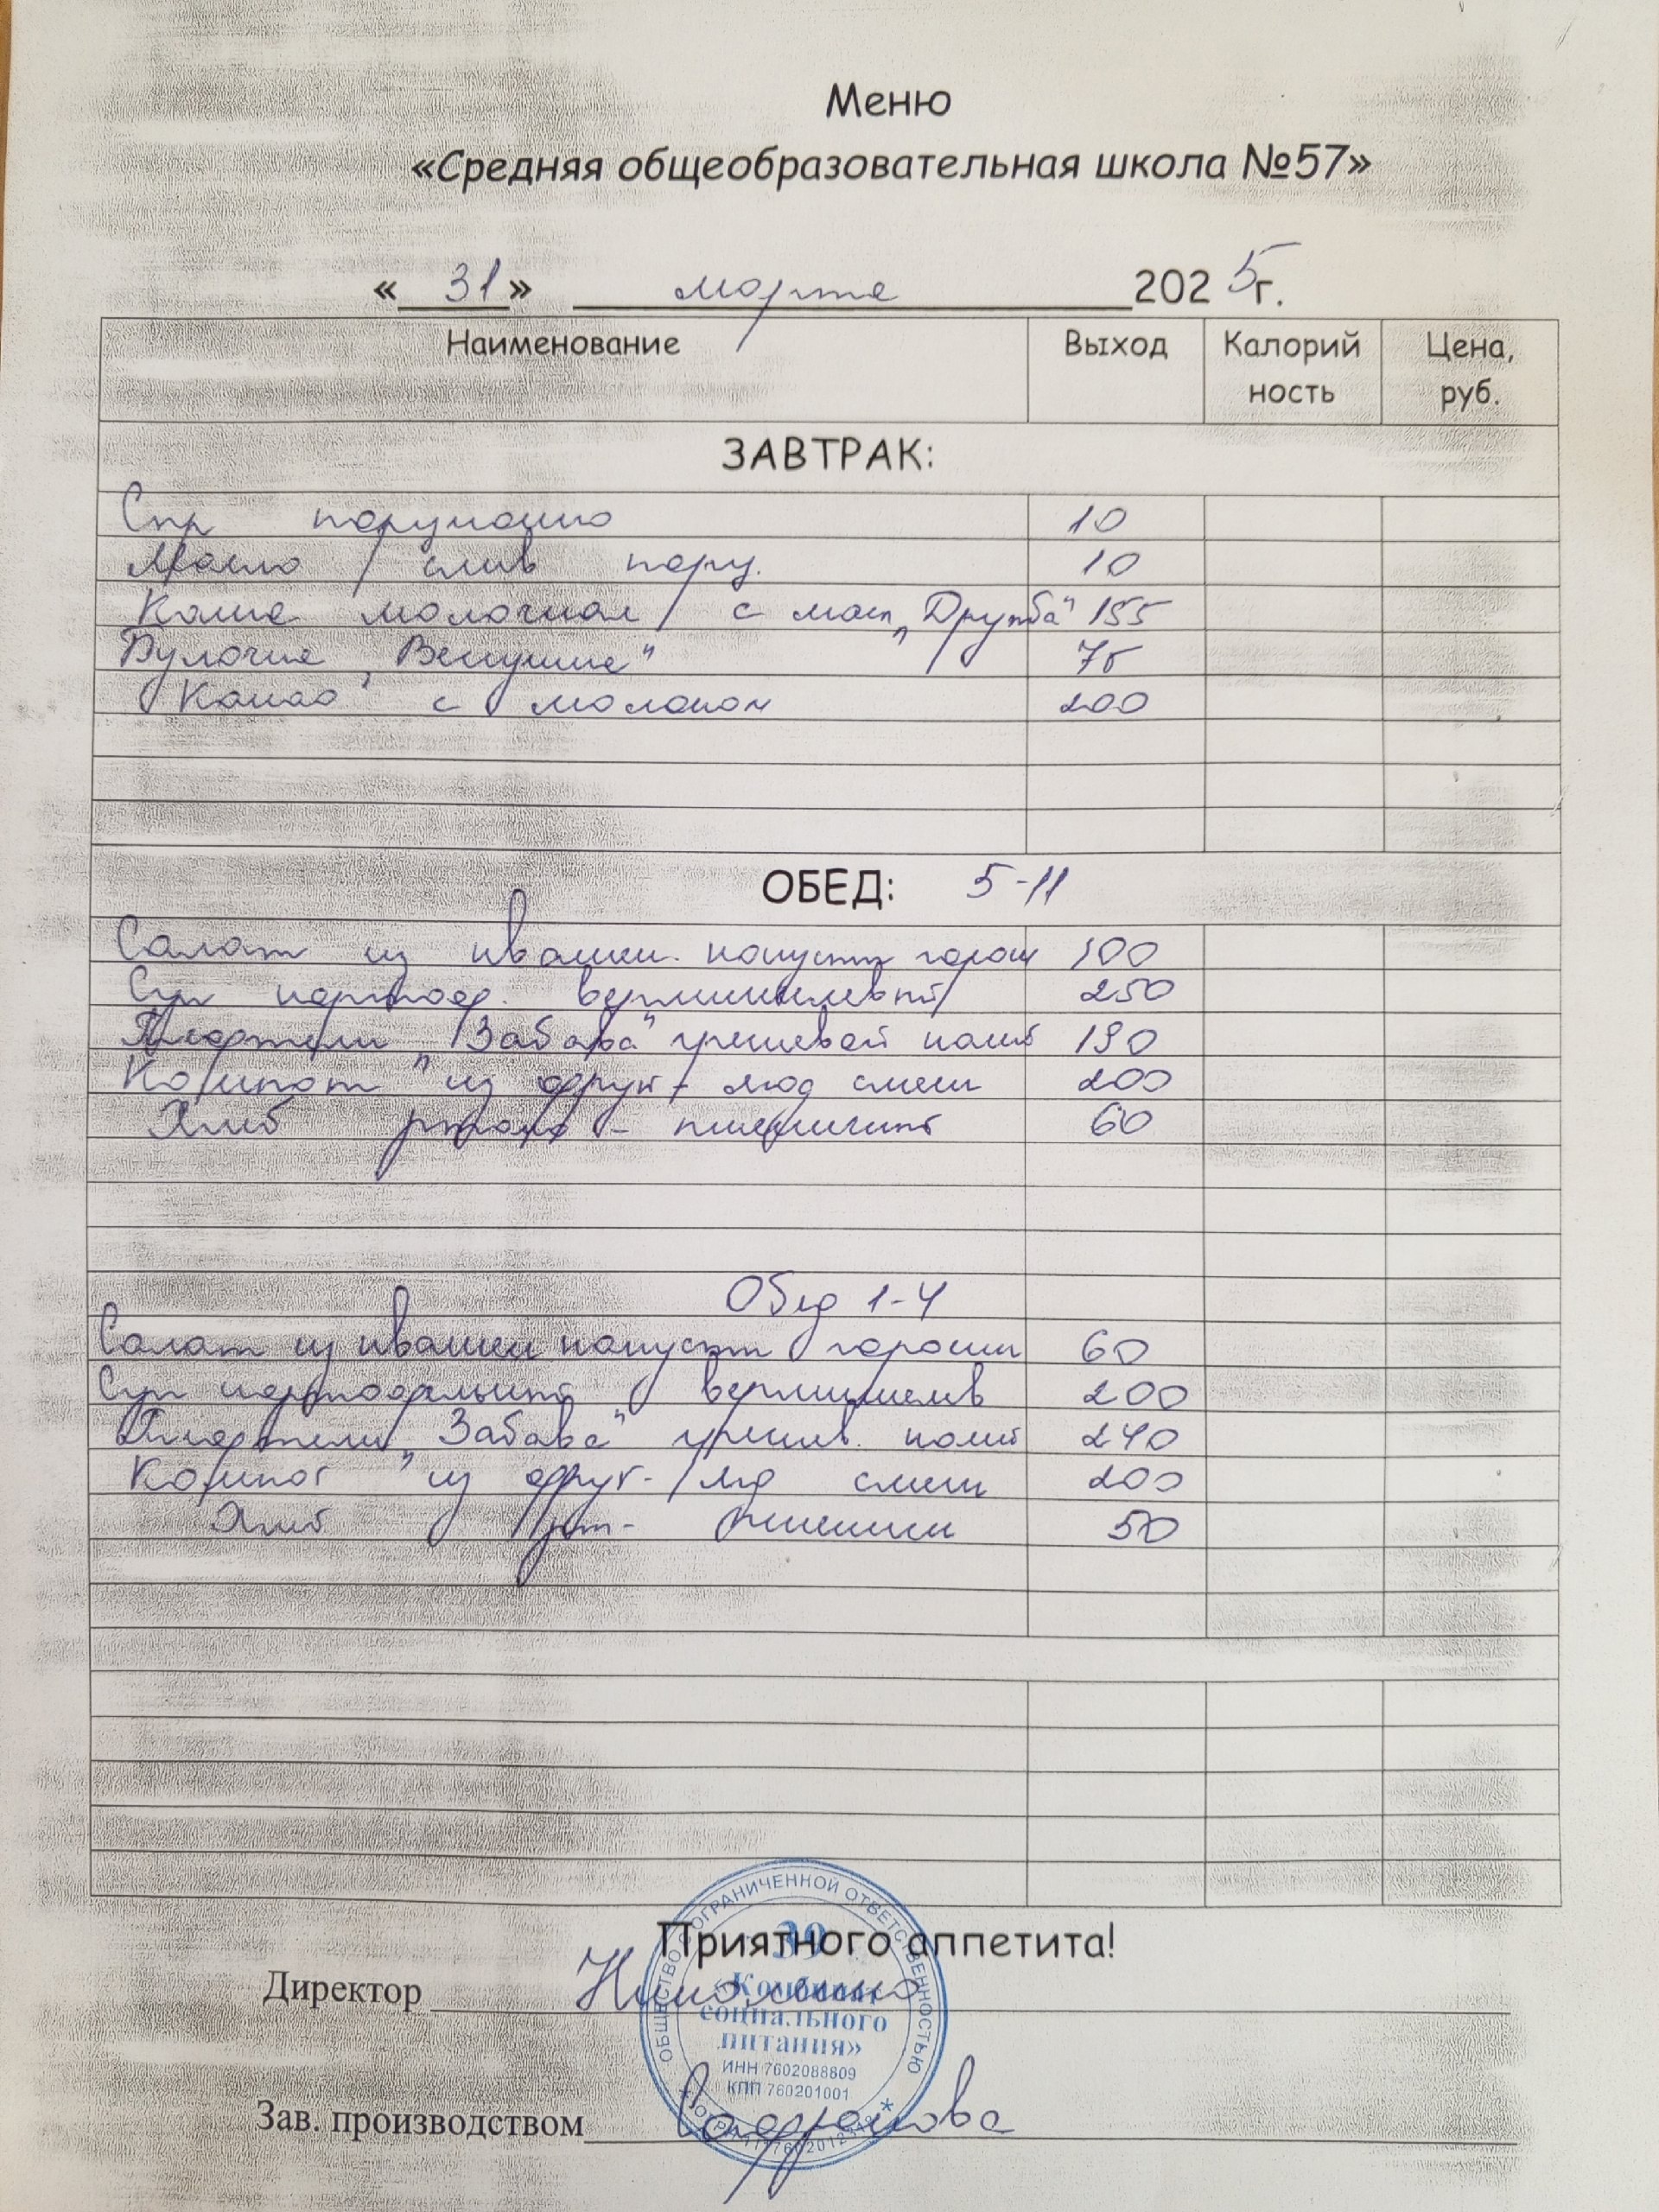 Меню
«Средняя общеобразовательная школа №57»
«31» марта 2025г.
Наименование Выход Калорий ность Цена, руб.
ЗАВТРАК:
Сыр порционно 10
Масло слив порц. 10
Каша молочная с масл „Дружба" 155
Булочка „Веснушка" 75
Какао с молоком 200
ОБЕД: 5-11
Салат из квашен. капусты горош 100
Суп картоф. вермишелевый 250
„Забава" гречневой 190
Компот из фрукт ягод смеси 200
Хлеб ржано - пшеничный 60
Обед 1-4
Салат из квашен капусты горошк 60
Суп картофельный вермишелев 200
„Забава" гречнев. 240
Компот из фрук- яг смеси 200
Хлеб рж- пшенич 50
Приятного аппетита!
ОБЩЕСТВО С ОГРАНИЧЕННОЙ ОТВЕТСТВЕННОСТЬЮ
«Комбинат
социального
питания»
ИНН 7602088809
КПП 760201001
Директор
Зав. производством